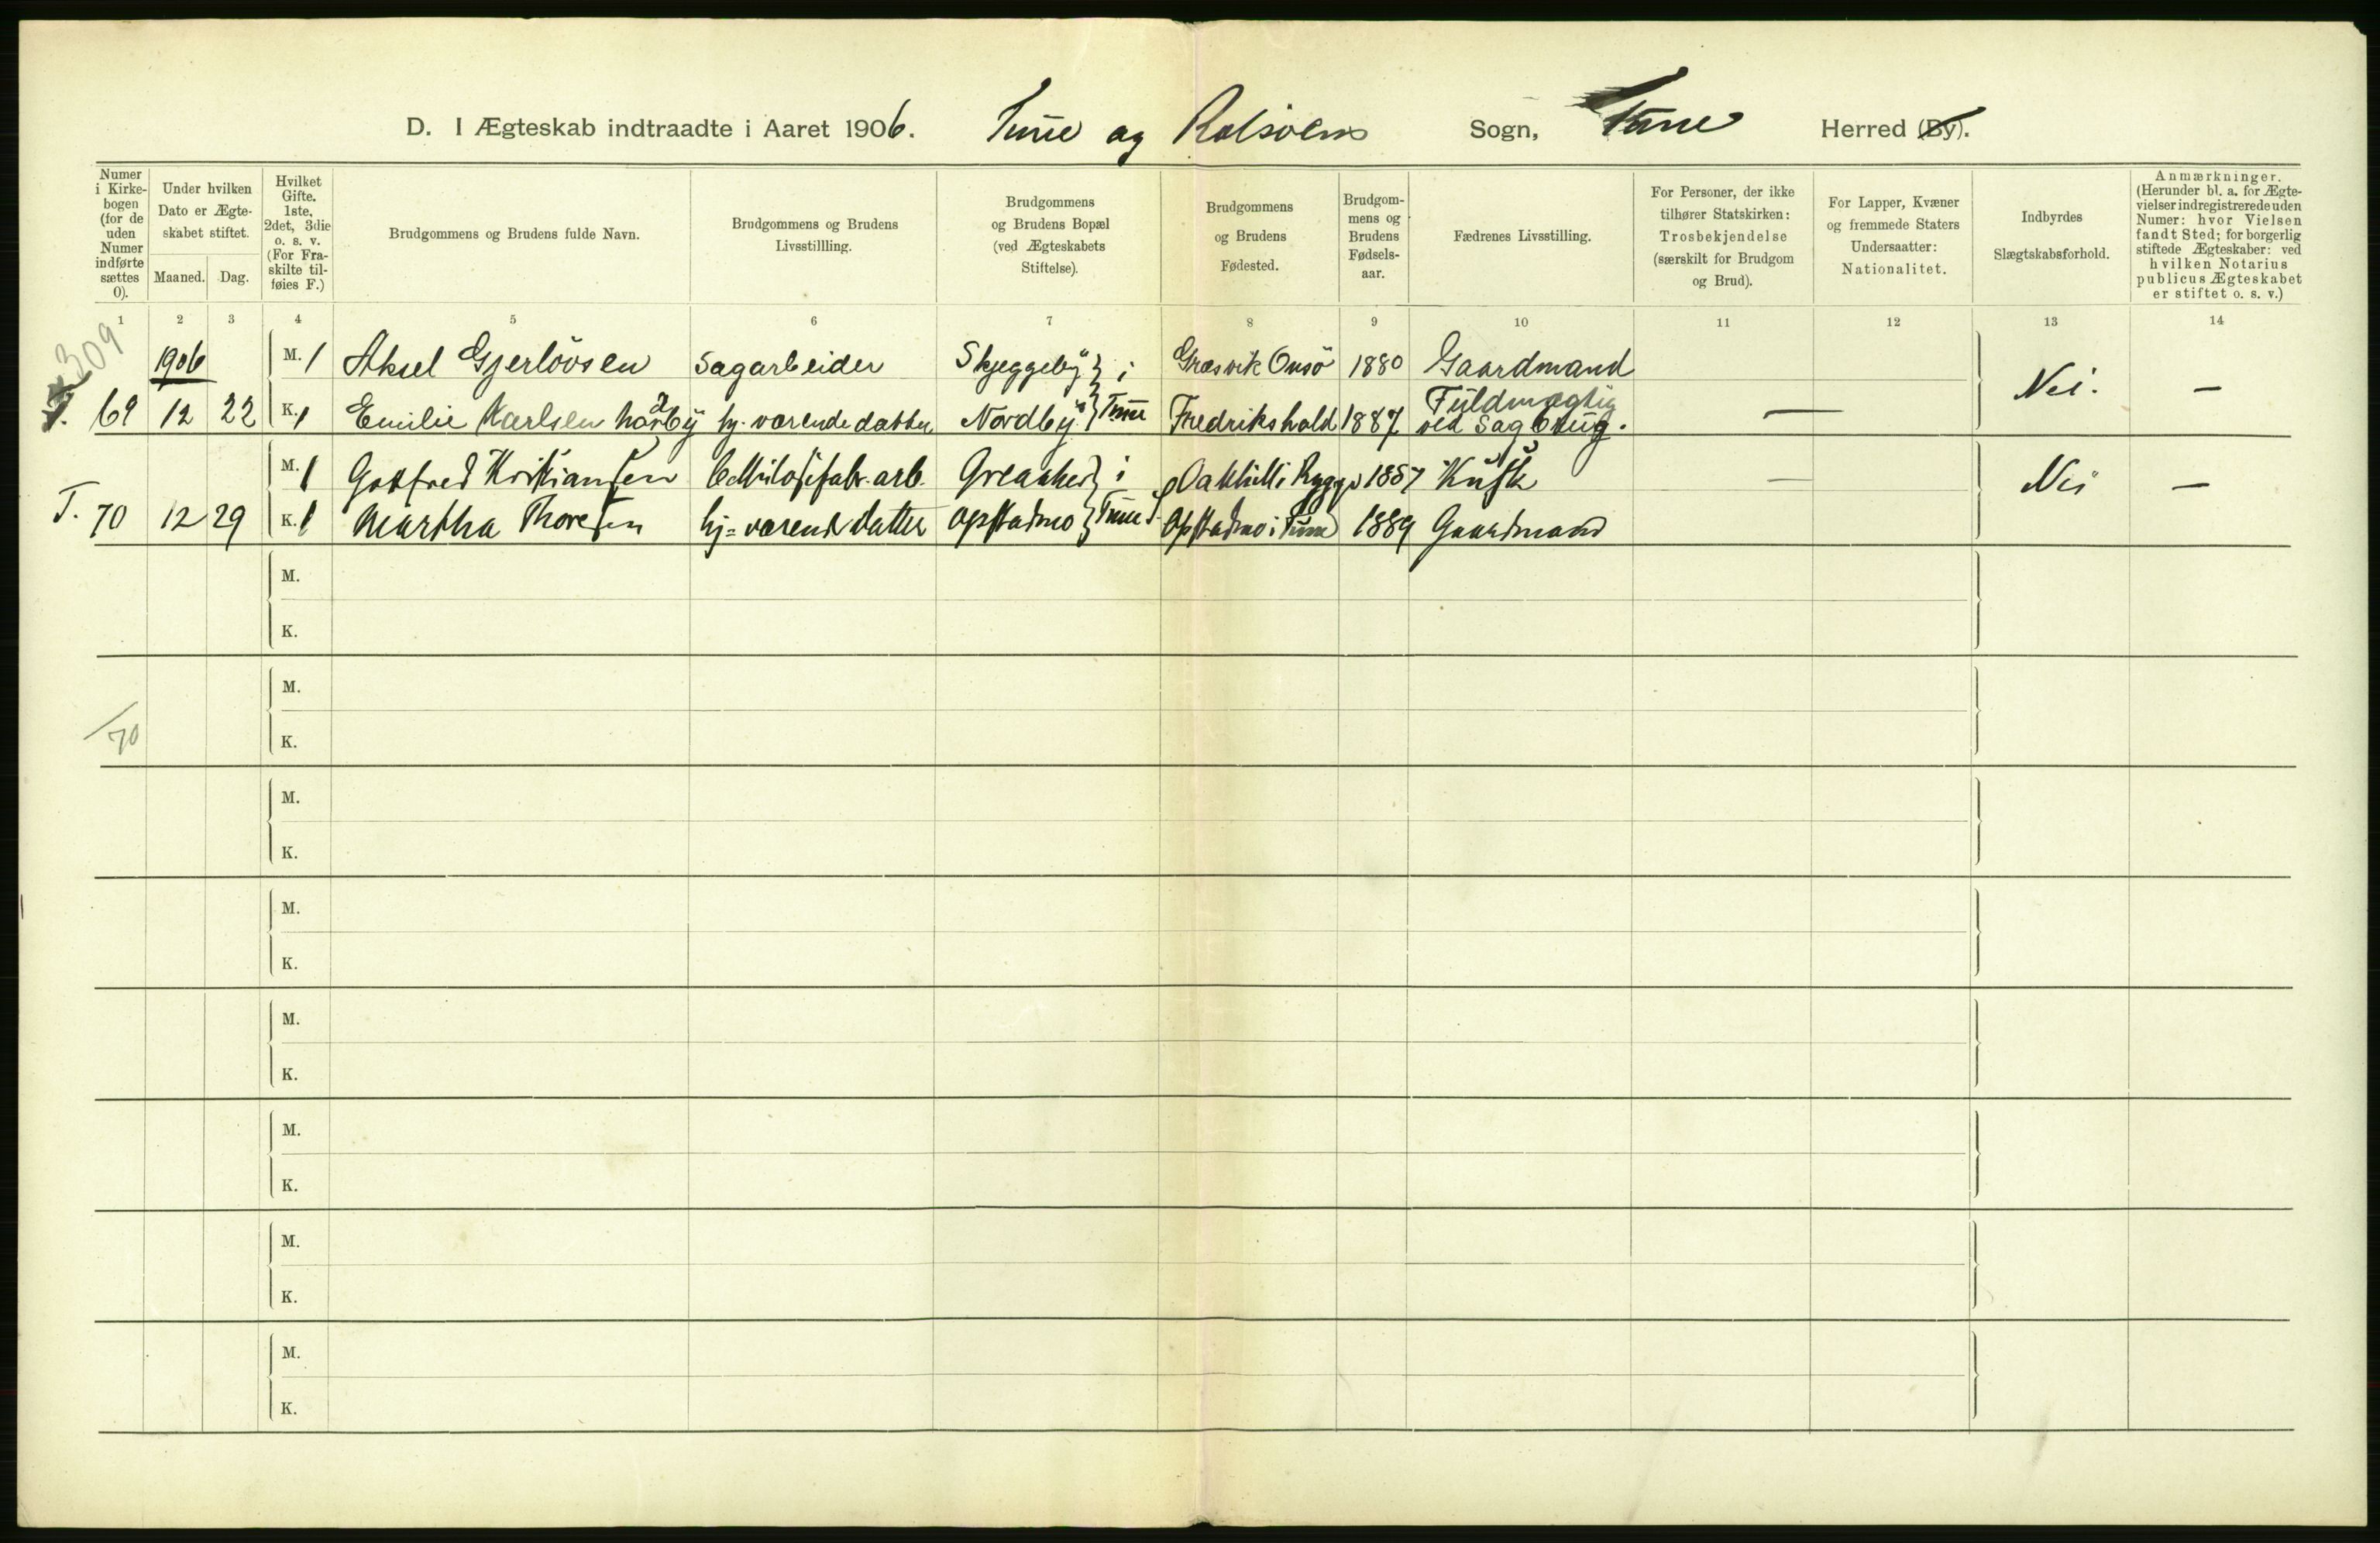 D. I Ægteskab indtraadte i Aaret 1906. Tune og Rolsøens Sogn, Tune Herred (By).
Numer i Kirkebogen (for de uden Numer indførte sættes 0).
Under hvilken Dato er Ægteskabet stiftet.
Maaned. Dag.
Hvilket Gifte. 1ste, 2det, 3die o. s. v. (For Fraskilte tilføies F.)
Brudgommens og Brudens fulde Navn.
Brudgommens og Brudens Livsstillling.
Brudgommens og Brudens Bopæl (ved Ægteskabets Stiftelse).
Brudgommens og Brudens Fødested.
Brudgommens og Brudens Fødselsaar.
Fædrenes Livsstilling.
For Personer, der ikke tilhører Statskirken: Trosbekjendelse (særskilt for Brudgom og Brud).
For Lapper, Kvæner og fremmede Staters Undersaatter: Nationalitet.
Indbyrdes Slægtskabsforhold.
Anmærkninger. (Herunder bl. a. for Ægtevielser indregistrerede uden Numer: hvor Vielsen fandt Sted; for borgerlig stiftede Ægteskaber: ved hvilken Notarius publicus Ægteskabet er stiftet o. s. v.)
1 2 3 4 5 6 7 8 9 10 11 12 13 14
309
1906 M. 1 Aksel Gjerløvsen Sagarbeider Skjeggeby } i Græsvik Onsö 1880 Gaardmand Nei. —
T. 69 12 22 K. 1 Emilie Karlsen Nordby hj. værende datter Nordby } Tune Fredrikshald 1887 Fuldmægtig ved Sagbrug. —
M. 1 Gotfred Kristiansen Cellulosefabr. arb. Greaaker } i Rygge 1887 Kusk — Nei —
T. 70 12 29 K. 1 Martha Thoresen hj=værende datter Opstadmo } Tune Opstadmo i Tune 1889 Gaardmand
M.
K.
M.
70 K.
M.
K.
M.
K.
M.
K.
M.
K.
M.
K.
M.
K.